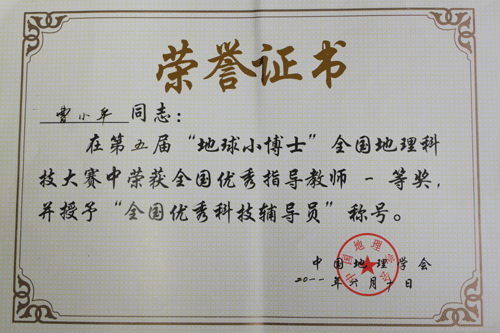 荣誉证书
曹小平 同志：
在第五届“地球小博士”全国地理科
技大赛中荣获全国优秀指导教师 一 等奖，
并授予“全国优秀科技辅导员”称号。
中国地理学会
二〇一一年六月十日
中国地理学会